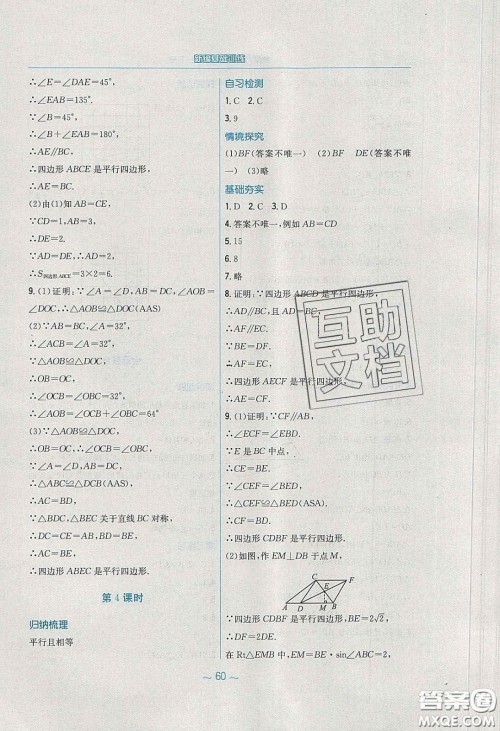 新编基础训练
∴∠E=∠DAE=45°,
∴∠EAB=135°.
∵∠B=45°,
∴∠B+∠EAB=180°,
∴AE∥BC,
∴四边形 ABCE 是平行四边形,
∴AE=BC.
(2)由(1)知 AB=CE,
∵CD=1,AB=3,
∴DE=2.
∵AD=DE,∴AD=2,
∴S四边形ABCE=3×2=6.
9.(1)证明:∵∠A=∠D,AB=DC,∠AOB=
∠DOC,∴△AOB≌△DOC(AAS)
(2)∵AB=BC,∠A=32°,
∴∠ACB=∠A=32°,
∵△AOB≌△DOC,
∴OB=OC,∴∠OCB=∠OBC=32°,
∴∠AOB=∠OCB+∠OBC=64°
(3)证明:∵△AOB≌△DOC,
∴OB=OC,∴OA=OD,
∴AC=BD,
∵△BDC,△BEC 关于直线 BC 对称,
∴DC=CE=AB,BD=BE,
∴AC=BE,
∴四边形 ABEC 是平行四边形.
第 4 课时
归纳梳理
平行且相等
自习检测
1. C 2. C
3. 9
情境探究
(1)BF(答案不唯一) (2)BF DE(答案不唯
一) (3)略
基础夯实
1. D 2. C 3. D
4. 答案不唯一,例如 AB=CD
5. 15
6. 8
7. 略
8. 证明:∵四边形 ABCD 是平行四边形,
∴AD∥BC,且 AD=BC,
∴AF∥EC.
∵BE=DF,
∴AF=EC,
∴四边形 AECF 是平行四边形.
∴AE=CF.
9.(1)证明:∵CF∥AB,
∴∠ECF=∠EBD.
∵E 是 BC 中点,
∴CE=BE.
∵∠CEF=∠BED,
∴△CEF≌△BED(ASA).
∴CF=BD.
∴四边形 CDBF 是平行四边形.
(2)如图,作 EM⊥DB 于点 M,
C F
E
A D M B
∵四边形 CDBF 是平行四边形,BE=2√2,
∴DF=2DE.
在 Rt△EMB 中,EM=BE·sin∠ABC=2,
~ 60 ~
互助
文档
答案圈
MXQE.COM